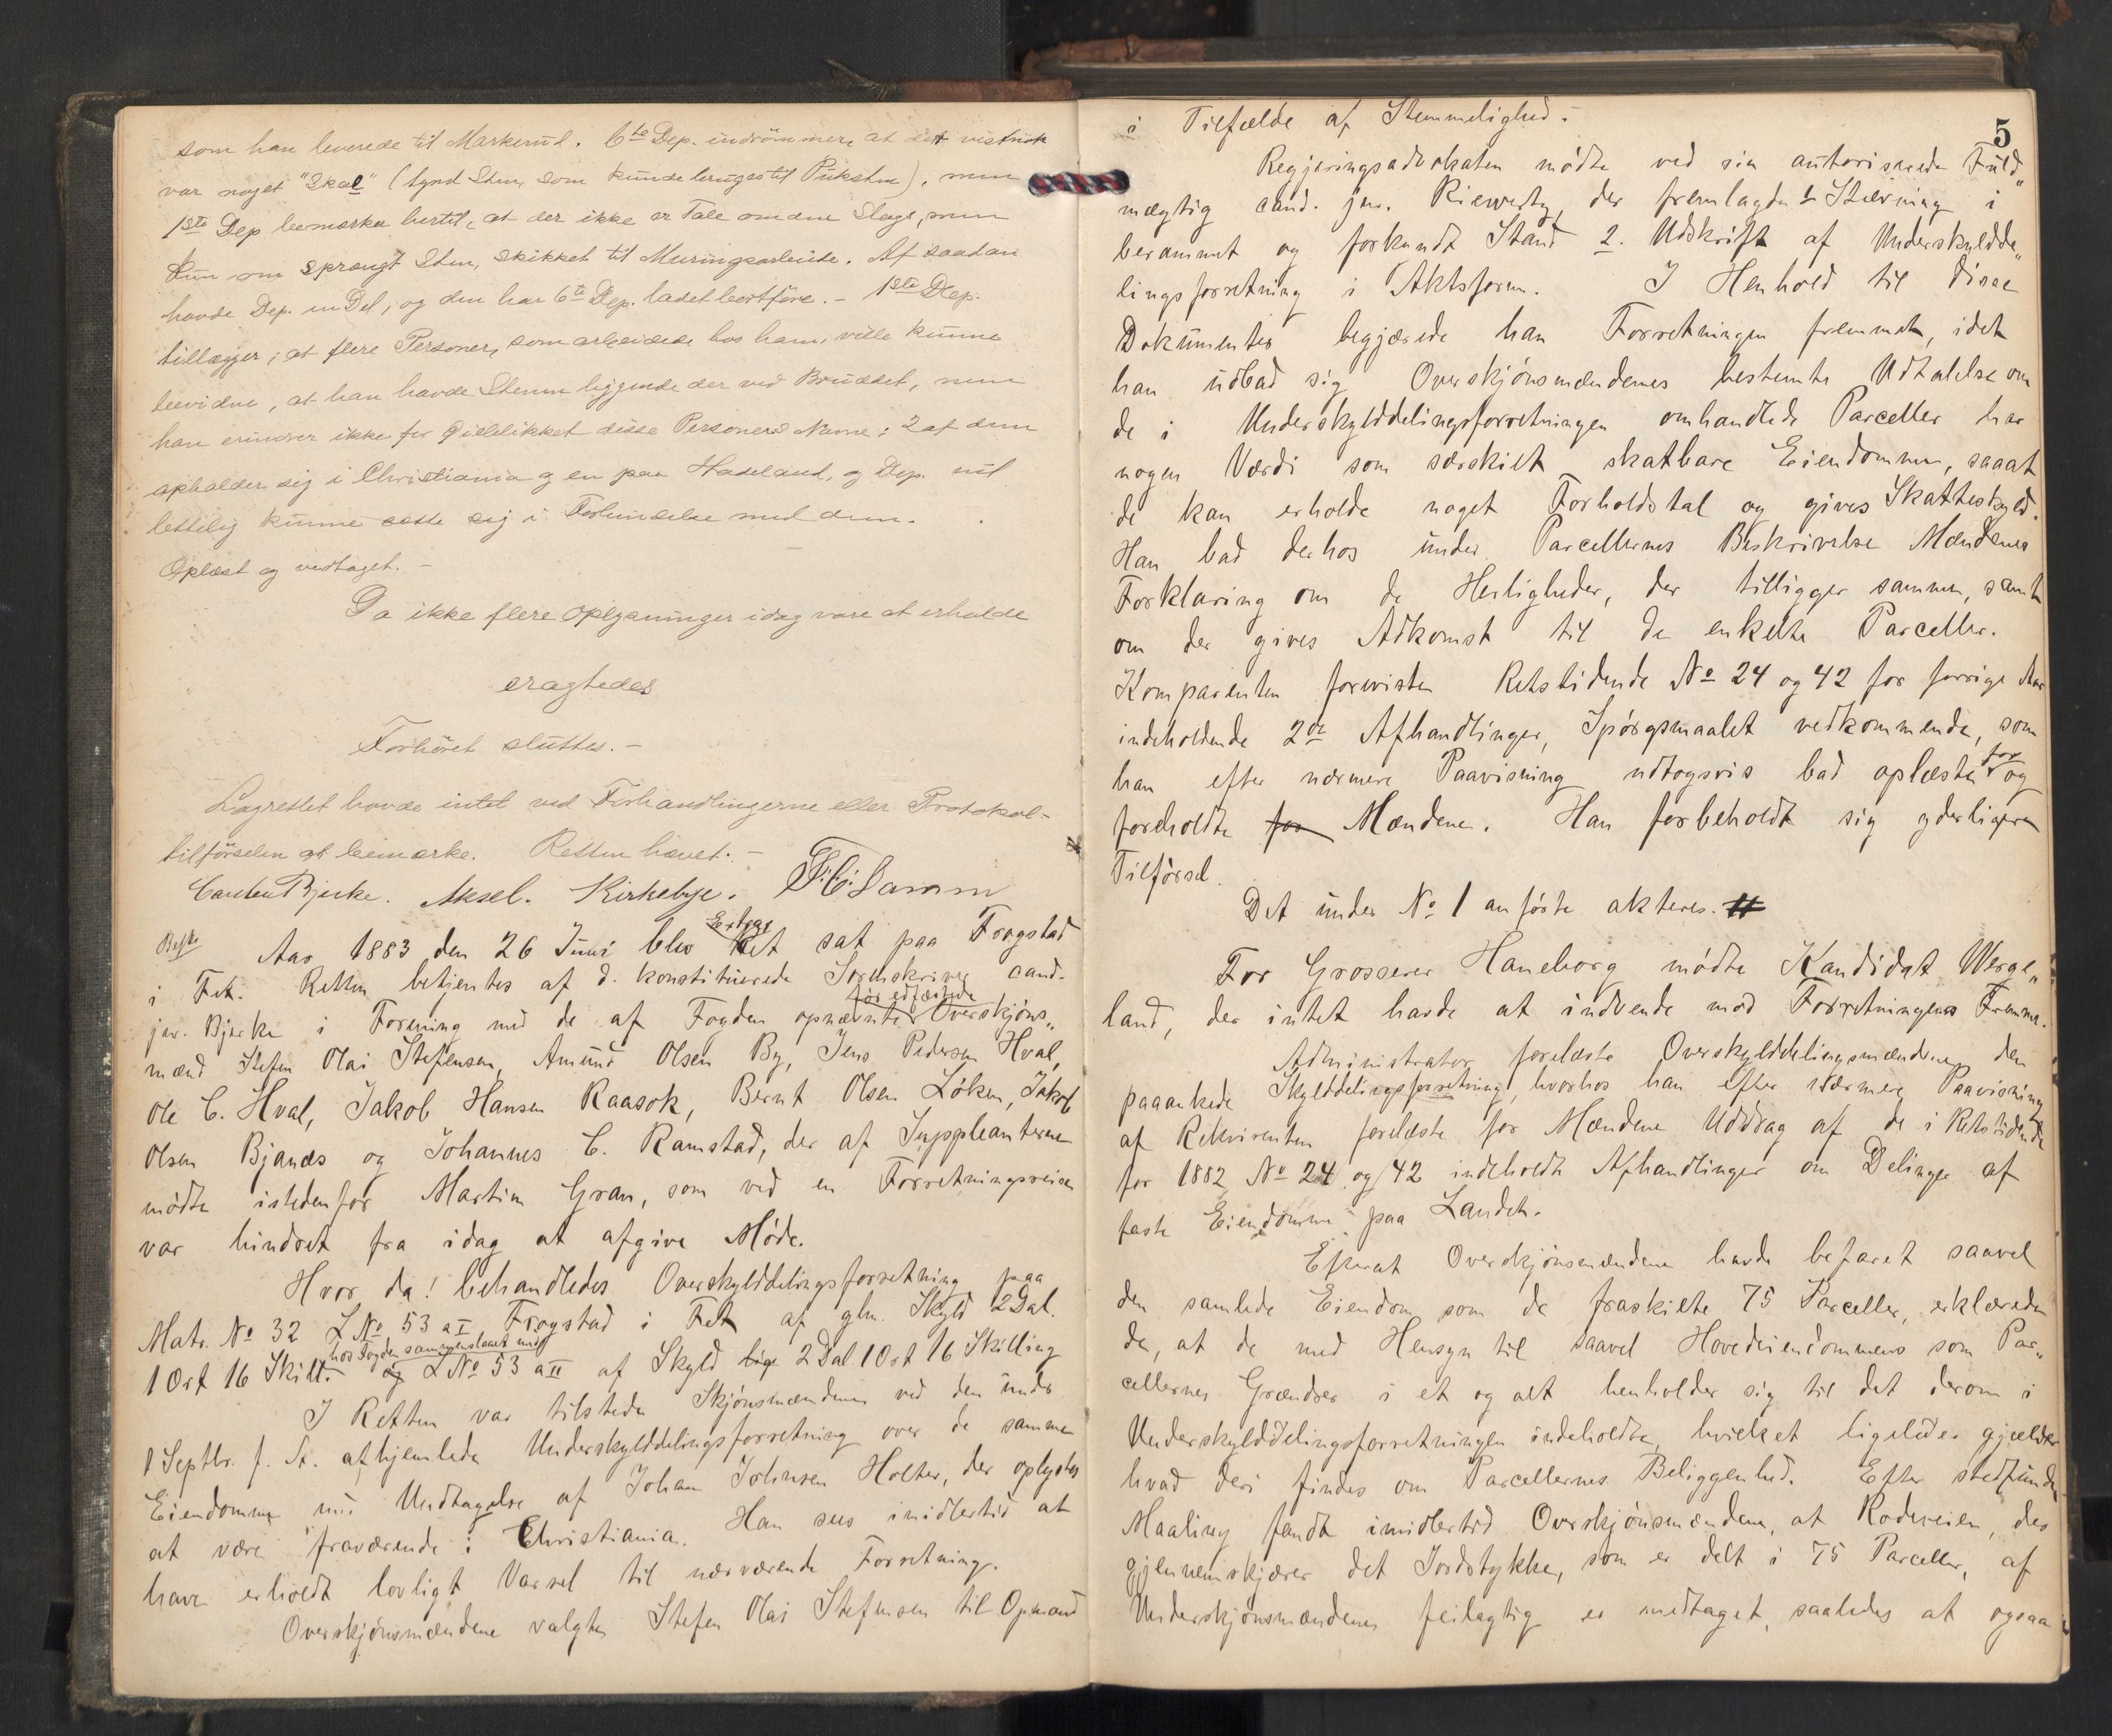 som han leverede til Markerud. 6te Dep. indrömmer, at det vistnok
var noget "Skal" (tynd Sten, som kunde bruges til Puksten), men
1ste Dep bemærker hertil, at der ikke er Tale om den Slags, men
kun om sprængt Sten, skikket til Muringsarbeide. Af saadan
havde Dep. en Del, og den har 6te Dep. ladet bortföre. - 1ste Dep.
tillægger, at flere Personer, som arbeidede hos ham, ville kunne
bevidne, at han havde Stenen liggende der ved Bruddet, men
han erindrer ikke for Øieblikket disse Personers Navne; 2 af dem
opholder sig i Christiania og en paa Hadeland, og Dep. vil
lettelig kunne sætte sig i Forbindelse med dem.
Oplæst og vedtaget. -
Da ikke flere Oplysninger idag vare at erholde
eragtedes
Forhöret sluttes. -
Lagrettet havde intet ved Forhandlingerne eller Protokol-
tilförselen at bemærke. Retten hævet. -
Carsten Bjerke. Aksel. Kirkebye. F.C. Damm
Aar 1883 den 26 Juni blev Extra Ret sat paa Frogstad
i Fet. Retten betjentes af d. konstituerede Sorenskriver cand.
jur. Bjerke i Forening med de af Fogden opnævnte før edfæstede Overskjöns„
mænd Stefen Olai Stefensen, Amund Olsen By, Jens Pedersen Hval,
Ole C. Hval, Jakob Hansen Raasok, Bernt Olsen Löken, Jakob
Olsen Bjanæs og Johannes C. Ramstad, der af Suppleanterne
mödte istedenfor Martin Gran, som ved en Forretningsreise
var hindret fra idag at afgive Möde.
Hvor da! behandledes Overskylddelingsforretning paa
Matr. No 32 L No 53 a I Frogstad i Fet af glm. Skyld 2 Dal.
1 Ort 16 Skill. hos Fogden sammenslaaet med L No 53 a II af Skyld lige 2 Dal 1 Ort 16 Skilling
I Retten var tilstede Skjönsmændene ved den under
1 Septbr. f. A. afhjemlede Underskylddelingsforretning over de samme
Eiendomme med Undtagelse af Johan Johnsen Holter, der oplystes
at være fraværende i Christiania. Han sees imidlertid at
have erholdt lovligt Varsel til nærværende Forretning.
Overskjönsmændene valgte Stefen Olai Stefensen til Opmand
5
i Tilfælde af Stemmelighed. -
Regjeringsadvokaten mödte ved sin autoriserede Fuld„
mægtig cand. jur. der fremlagde 1 Stævning i
berammet og forkyndt Stand 2. Udskrift af Underskyldde„
lingsforretning i Aktsform. I Henhold til disse
Dokumenter begjærede han Forretningen fremmet, idet
han udbad sig Overskjönsmændenes bestemte Udtalelse om
de i Underskylddelingsforretningen omhandlede Parceller har
nogen Værdi som særskilt skatbare Eiendomme, saaat
de kan erholde noget Forholdstal og gives Skatteskyld.
Han bad derhos under Parcellernes Beskrivelse Mændenes
Forklaring om de Herligheder, der tilligger samme, samt
om der gives Adkomst til de enkelte Parceller.
Komparenten foreviste Retstidende No 24 og 42 for forrige Aar
indeholdende 2de Afhandlinger, Spörgsmaalet vedkommende, som
han efter nærmere Paavisning udtogsvis bad oplæste for og
foreholdte for Mændene. Han forbeholdt sig yderligere
Tilförsel.
Det under No 1 anförte akteres.
For Grosserer Haneborg mödte Kandidat Werge„
land, der intet havde at indvende mod Forretningens Fremme.
Administrator forelæste Overskylddelingsmændene den
paaankede Skylddelingsforretning, hvorhos han efter nærmere Paavisning
af Rekvirenten forelæste for Mændene Uddrag af de i Retstidende
for 1882 No 24 og 42 indeholdte Afhandlinger om Delinger af
faste Eiendomme paa Landet.
Efterat Overskjönsmændene havde befaret saavel
den samlede Eiendom som de fraskilte 75 Parceller, erklærede
de, at de med Hensyn til saavel Hovedeiendommens som Par„
cellernes Grændser i et og alt henholder sig til det derom i
Underskylddelingsforretningen indeholdte, hvilket ligeledes gjælder
hvad deri findes om Parcellernes Beliggenhed. Efter stedfunden
Maaling fandt imidlertid Overskjönsmændene, at Rodeveien, der
gjennemskjærer det Jordstykke, som er delt i 75 Parceller, af
Underskjönsmændene feilagtig er medtaget, saaledes at ogsaa